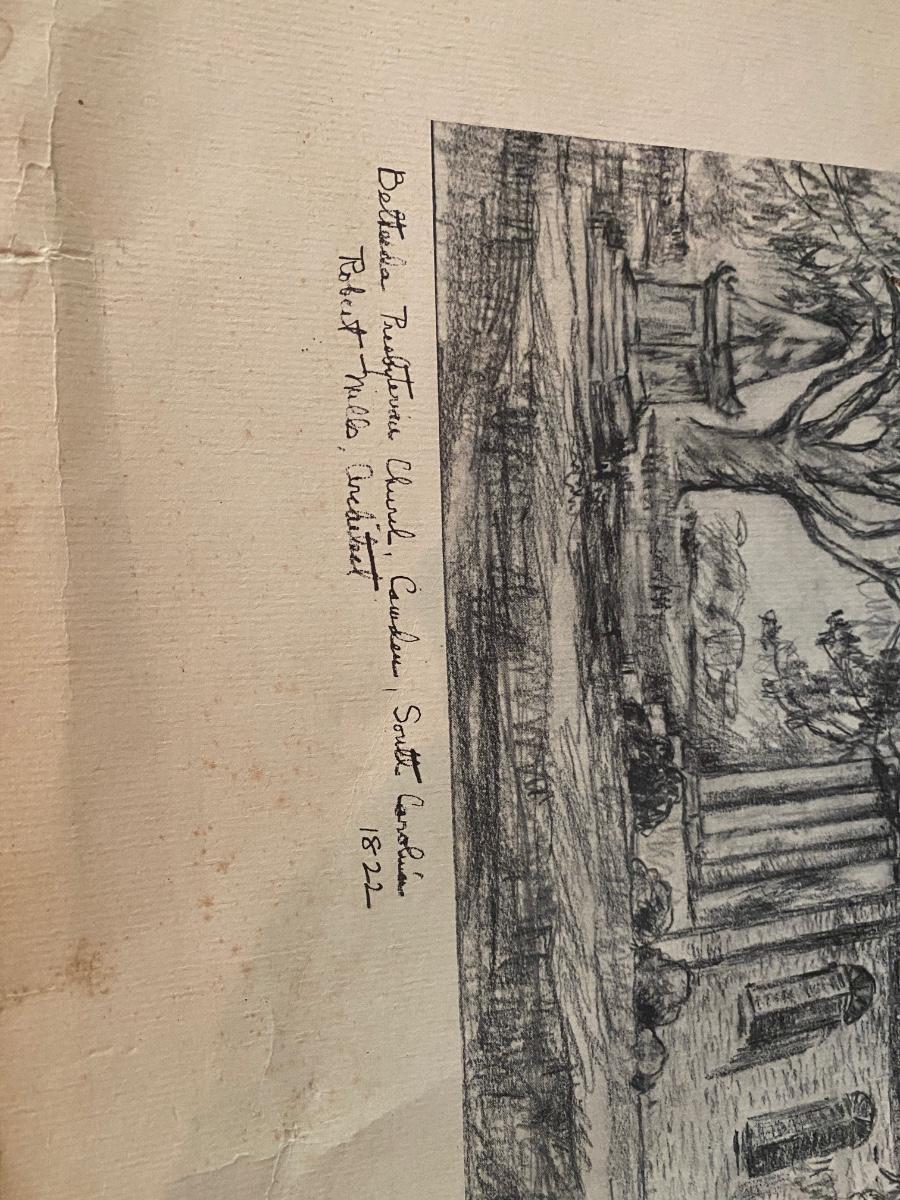 Bethesda Presbyterian Church, Camden, South Carolina
Robert Mills, Architect 1822